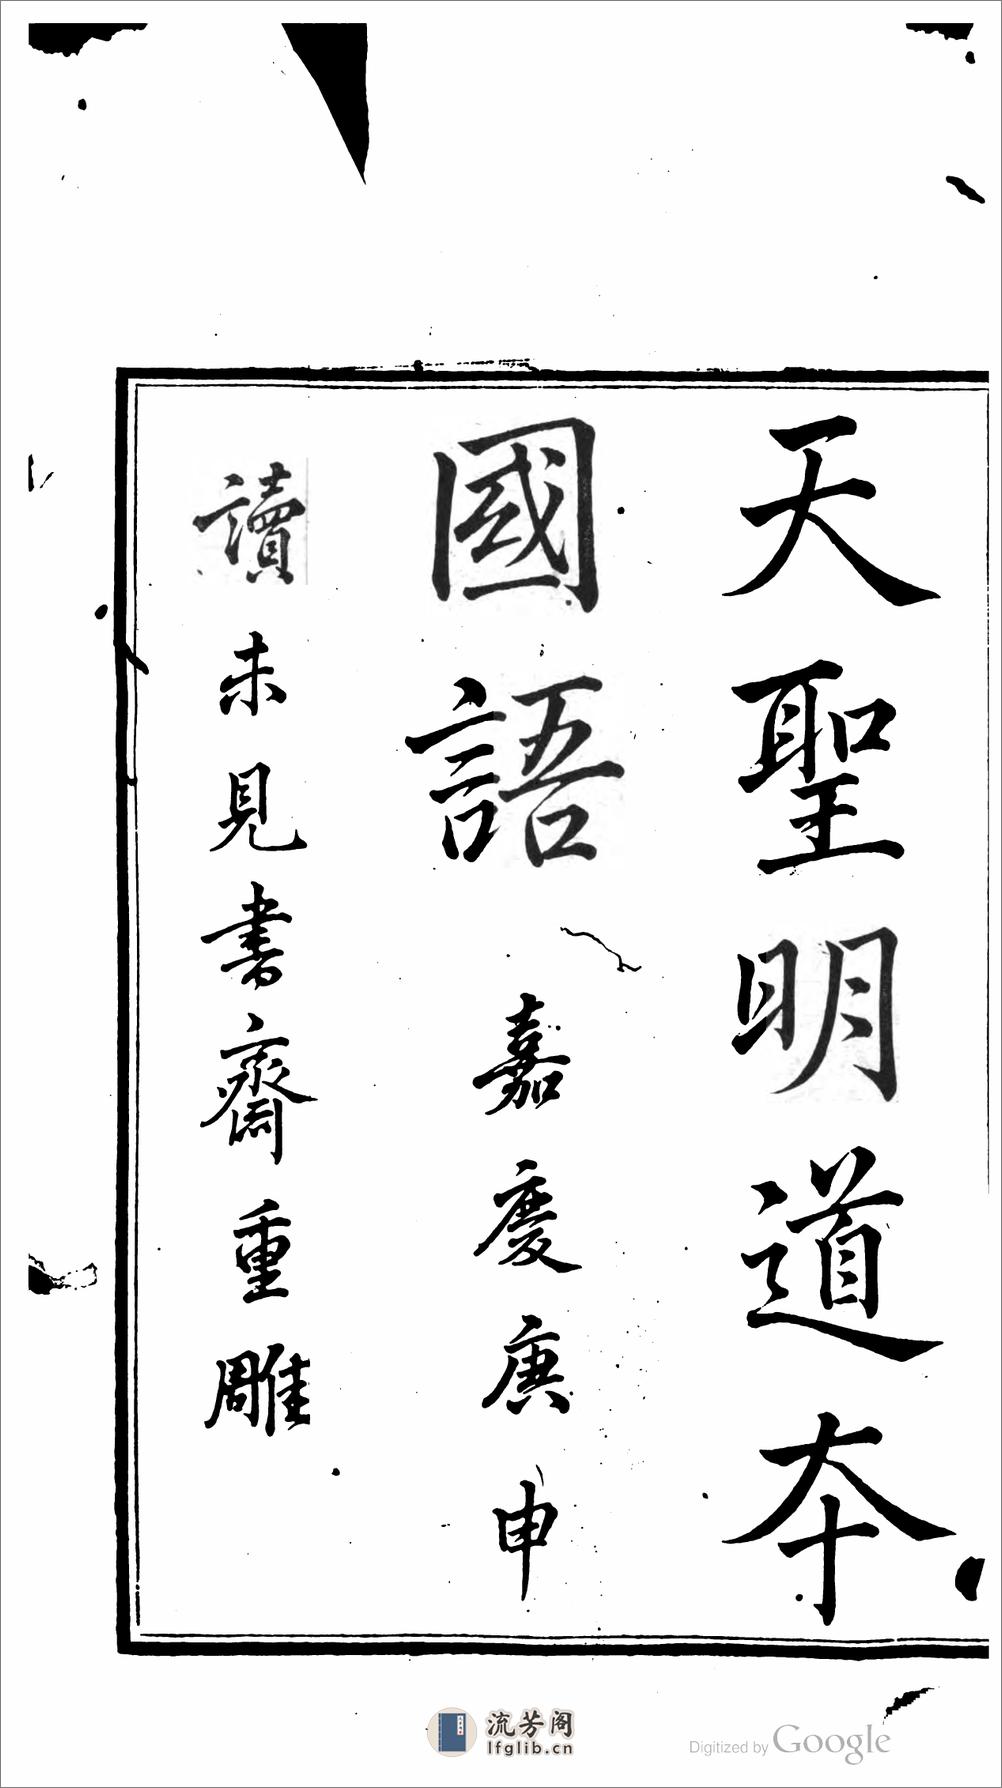 天聖明道夲
國語 嘉慶庚申
讀未見書齋重雕
流芳阁
lfglib.cn
Digitized by Google